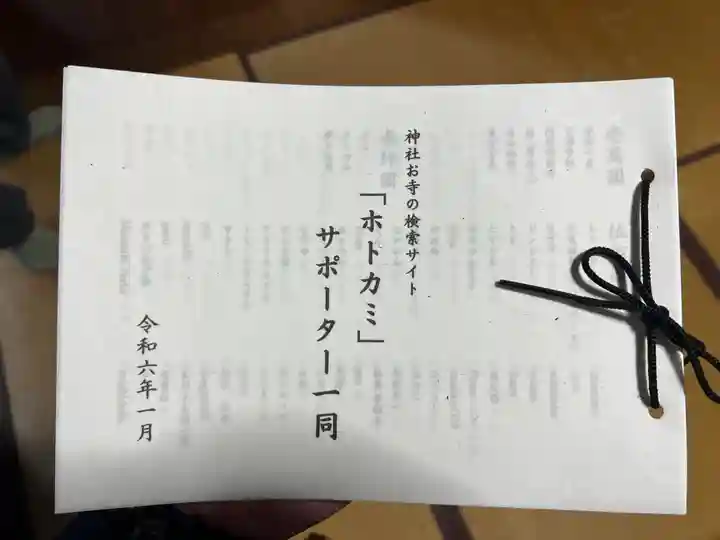 神社お寺の検索サイト
「ホトカミ」
サポーター一同
令和六年一月